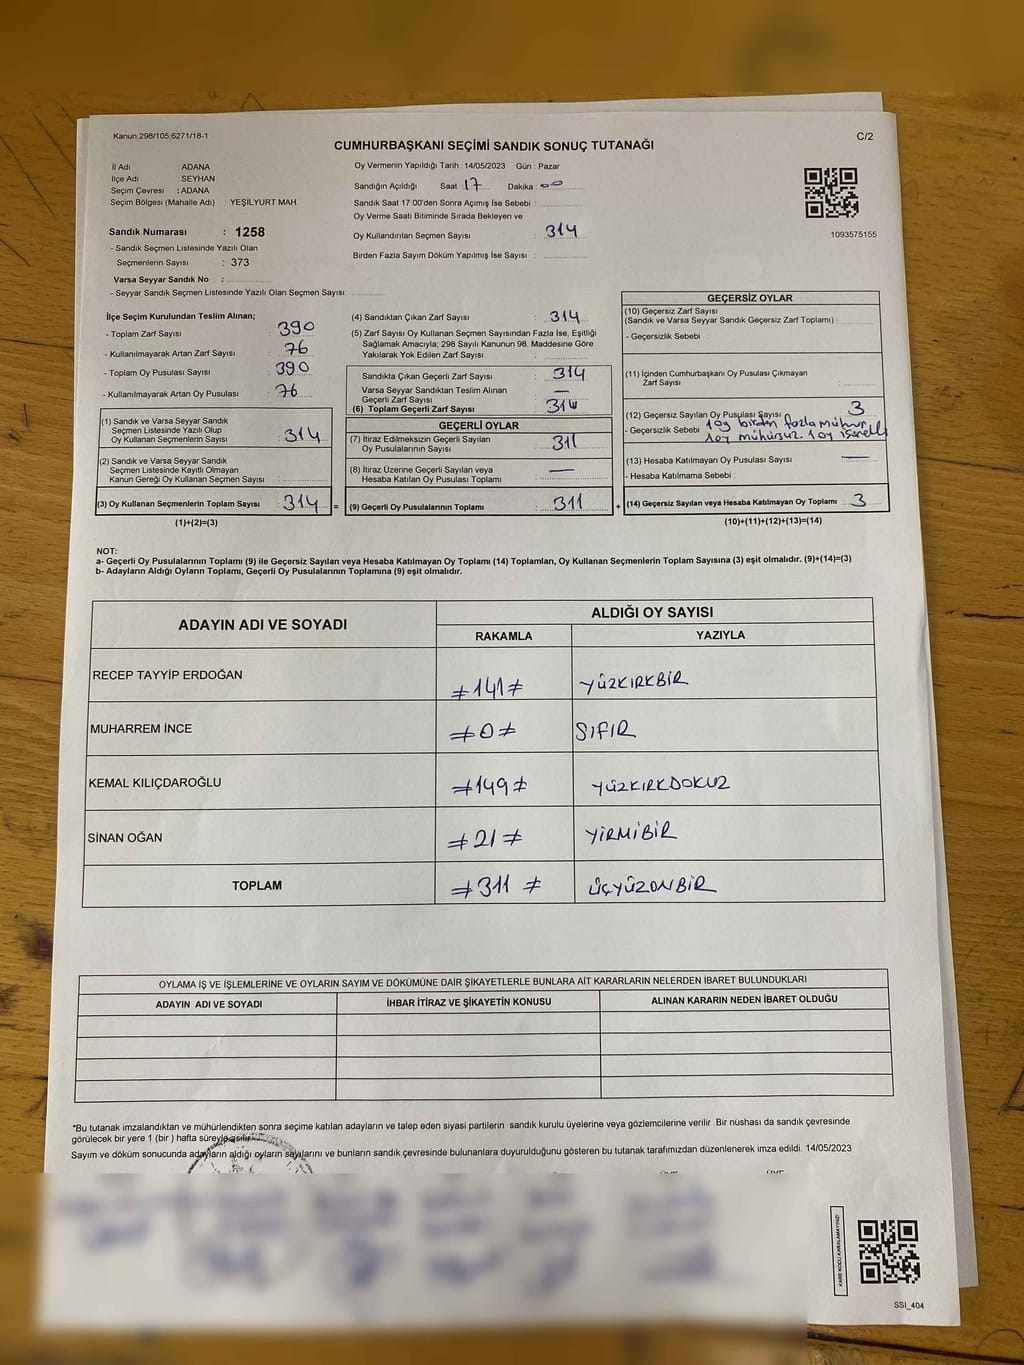 Kanun;298/105;6271/18-1
C/2
CUMHURBAŞKANI SEÇİMİ SANDIK SONUÇ TUTANAĞI
İl Adı : ADANA
İlçe Adı : SEYHAN
Seçim Çevresi : ADANA
Seçim Bölgesi (Mahalle Adı) : YEŞİLYURT MAH.
Sandık Numarası : 1258
- Sandık Seçmen Listesinde Yazılı Olan
Seçmenlerin Sayısı : 373
Varsa Seyyar Sandık No :
- Seyyar Sandık Seçmen Listesinde Yazılı Olan Seçmen Sayısı:
Oy Vermenin Yapıldığı Tarih :14/05/2023 Gün : Pazar
Sandığın Açıldığı Saat 17 Dakika : 00
Sandık Saat 17:00'den Sonra Açımış İse Sebebi :
Oy Verme Saati Bitiminde Sırada Bekleyen ve
Oy Kullandırılan Seçmen Sayısı : 314
Birden Fazla Sayım Döküm Yapılmış İse Sayısı :
1093575155
İlçe Seçim Kurulundan Teslim Alınan;
- Toplam Zarf Sayısı : 390
- Kullanılmayarak Artan Zarf Sayısı : 76
- Toplam Oy Pusulası Sayısı : 390
- Kullanılmayarak Artan Oy Pusulası : 76
(1) Sandık ve Varsa Seyyar Sandık
Seçmen Listesinde Yazılı Olup
Oy Kullanan Seçmenlerin Sayısı : 314
(2) Sandık ve Varsa Seyyar Sandık
Seçmen Listesinde Kayıtlı Olmayan
Kanun Gereği Oy Kullanan Seçmen Sayısı :
(3) Oy Kullanan Seçmenlerin Toplam Sayısı : 314
(1)+(2)=(3)
=
(4) Sandıktan Çıkan Zarf Sayısı : 314
(5) Zarf Sayısı Oy Kullanan Seçmen Sayısından Fazla İse, Eşitliği
Sağlamak Amacıyla; 298 Sayılı Kanunun 98. Maddesine Göre
Yakılarak Yok Edilen Zarf Sayısı :
Sandıkta Çıkan Geçerli Zarf Sayısı : 314
Varsa Seyyar Sandıktan Teslim Alınan
Geçerli Zarf Sayısı : —
(6) Toplam Geçerli Zarf Sayısı : 314
GEÇERLİ OYLAR
(7) İtiraz Edilmeksizin Geçerli Sayılan
Oy Pusulalarının Sayısı : 311
(8) İtiraz Üzerine Geçerli Sayılan veya
Hesaba Katılan Oy Pusulası Toplamı : —
(9) Geçerli Oy Pusulalarının Toplamı : 311
+
GEÇERSİZ OYLAR
(10) Geçersiz Zarf Sayısı
(Sandık ve Varsa Seyyar Sandık Geçersiz Zarf Toplamı) :
- Geçersizlik Sebebi :
(11) İçinden Cumhurbaşkanı Oy Pusulası Çıkmayan
Zarf Sayısı :
(12) Geçersiz Sayılan Oy Pusulası Sayısı : 3
- Geçersizlik Sebebi 1 oy birden fazla mühür,
1 oy mühürsüz. 1 oy işaretli
(13) Hesaba Katılmayan Oy Pusulası Sayısı : —
- Hesaba Katılmama Sebebi :
(14) Geçersiz Sayılan veya Hesaba Katılmayan Oy Toplamı : 3
(10)+(11)+(12)+(13)=(14)
NOT:
a- Geçerli Oy Pusulalarının Toplamı (9) ile Geçersiz Sayılan veya Hesaba Katılmayan Oy Toplamı (14) Toplamları, Oy Kullanan Seçmenlerin Toplam Sayısına (3) eşit olmalıdır. (9)+(14)=(3)
b- Adayların Aldığı Oyların Toplamı, Geçerli Oy Pusulalarının Toplamına (9) eşit olmalıdır.
ADAYIN ADI VE SOYADI
ALDIĞI OY SAYISI
RAKAMLA YAZIYLA
RECEP TAYYİP ERDOĞAN ≠141≠ YÜZKIRKBİR
MUHARREM İNCE ≠0≠ SIFIR
KEMAL KILIÇDAROĞLU ≠149≠ YÜZKIRKDOKUZ
SİNAN OĞAN ≠21≠ YİRMİBİR
TOPLAM ≠311≠ ÜÇYÜZONBİR
OYLAMA İŞ VE İŞLEMLERİNE VE OYLARIN SAYIM VE DÖKÜMÜNE DAİR ŞİKAYETLERLE BUNLARA AİT KARARLARIN NELERDEN İBARET BULUNDUKLARI
ADAYIN ADI VE SOYADI İHBAR İTİRAZ VE ŞİKAYETİN KONUSU ALINAN KARARIN NEDEN İBARET OLDUĞU
*Bu tutanak imzalandıktan ve mühürlendikten sonra seçime katılan adayların ve talep eden siyasi partilerin sandık kurulu üyelerine veya gözlemcilerine verilir. Bir nüshası da sandık çevresinde
görülecek bir yere 1 (bir ) hafta süreyle asılır.
Sayım ve döküm sonucunda adayların aldığı oyların sayılarını ve bunların sandık çevresinde bulunanlara duyurulduğunu gösteren bu tutanak tarafımızdan düzenlenerek imza edildi. 14/05/2023
KARE KODU KARALAMAYINIZ!
SSI_404